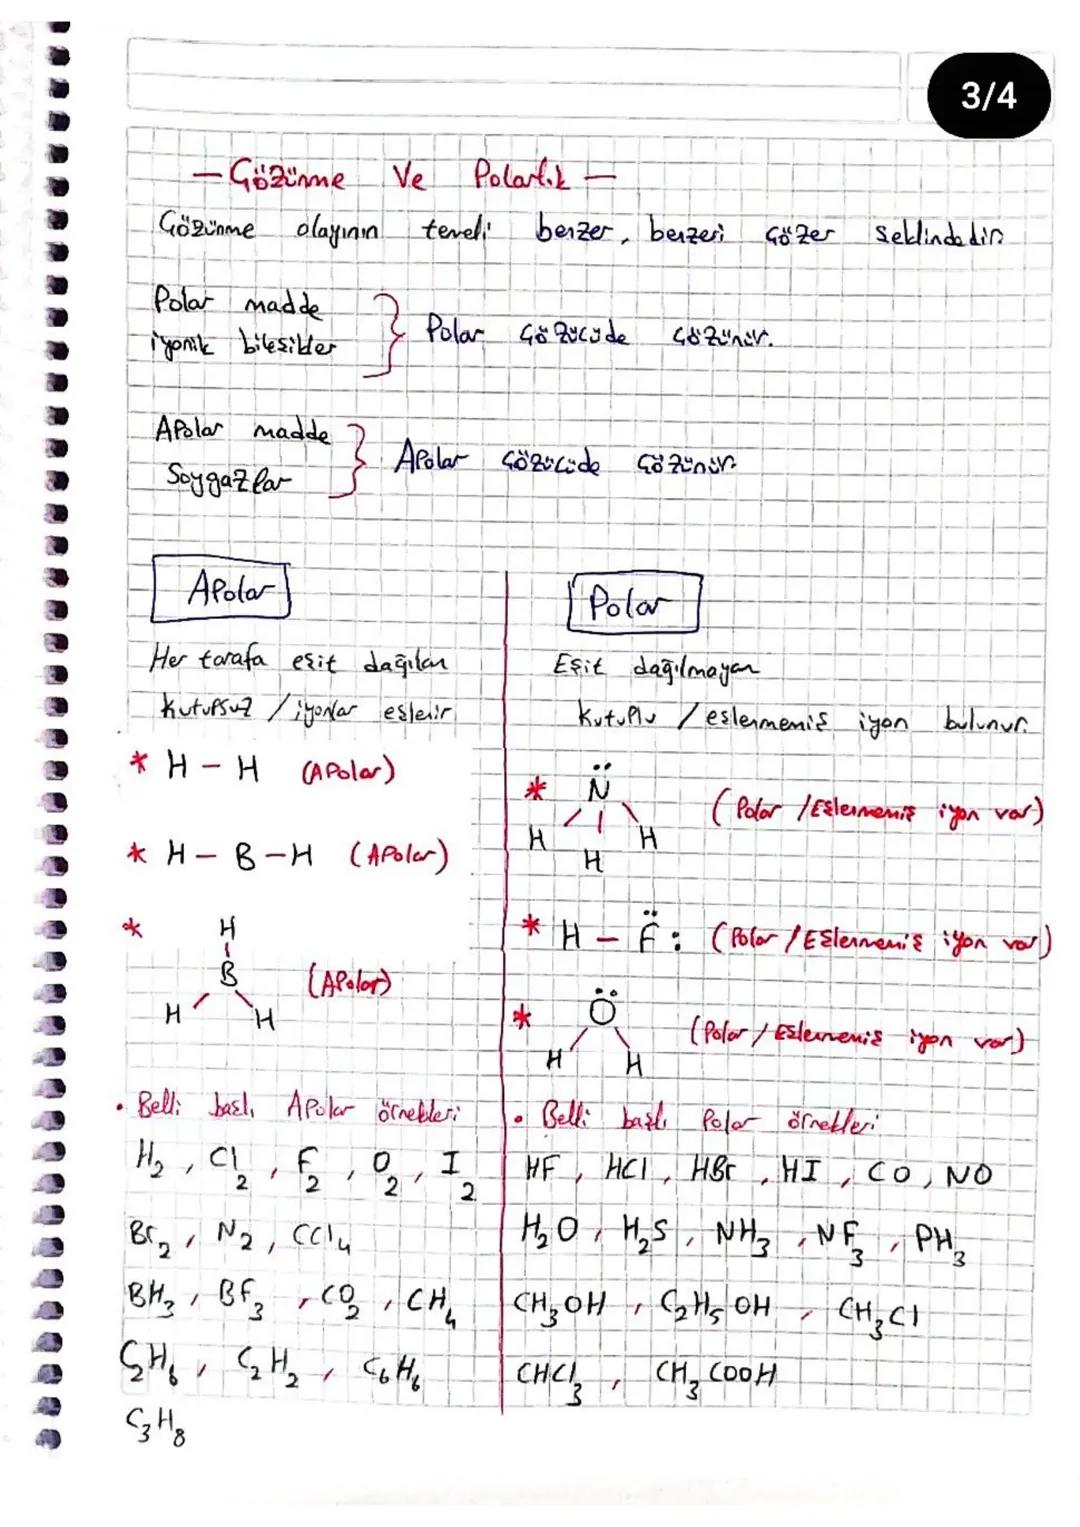 3/4
— Çözünme Ve Polarlık —
Çözünme olayının temeli benzer, benzeri çözer şeklindedir.
Polar madde
iyonik bileşikler
} Polar çözücüde çözünür.
Apolar madde
Soygazlar
} Apolar çözücüde çözünür
Apolar
Her tarafa eşit dağılan
kutupsuz / iyonlar eşlenir
* H – H (Apolar)
* H – B – H (Apolar)
* H
B (Apolar)
H H
• Belli başlı Apolar örnekleri
H₂, Cl₂, F₂, O₂, I₂
Br₂, N₂, CCl₄
BH₃, BF₃, CO₂, CH₄
C₂H₆, C₂H₂, C₆H₆
C₃H₈
Polar
Eşit dağılmayan
kutuplu / eşlenmemiş iyon bulunur.
* N̈ (Polar / Eşlenmemiş iyon var)
H H
H
* H – F̈ : (Polar / Eşlenmemiş iyon var)
* Ö (Polar / Eşlenmemiş iyon var)
H H
• Belli başlı Polar örnekleri
HF, HCl, HBr, HI, CO, NO
H₂O, H₂S, NH₃, NF₃, PH₃
CH₃OH, C₂H₅OH, CH₃Cl
CHCl₃, CH₃COOH